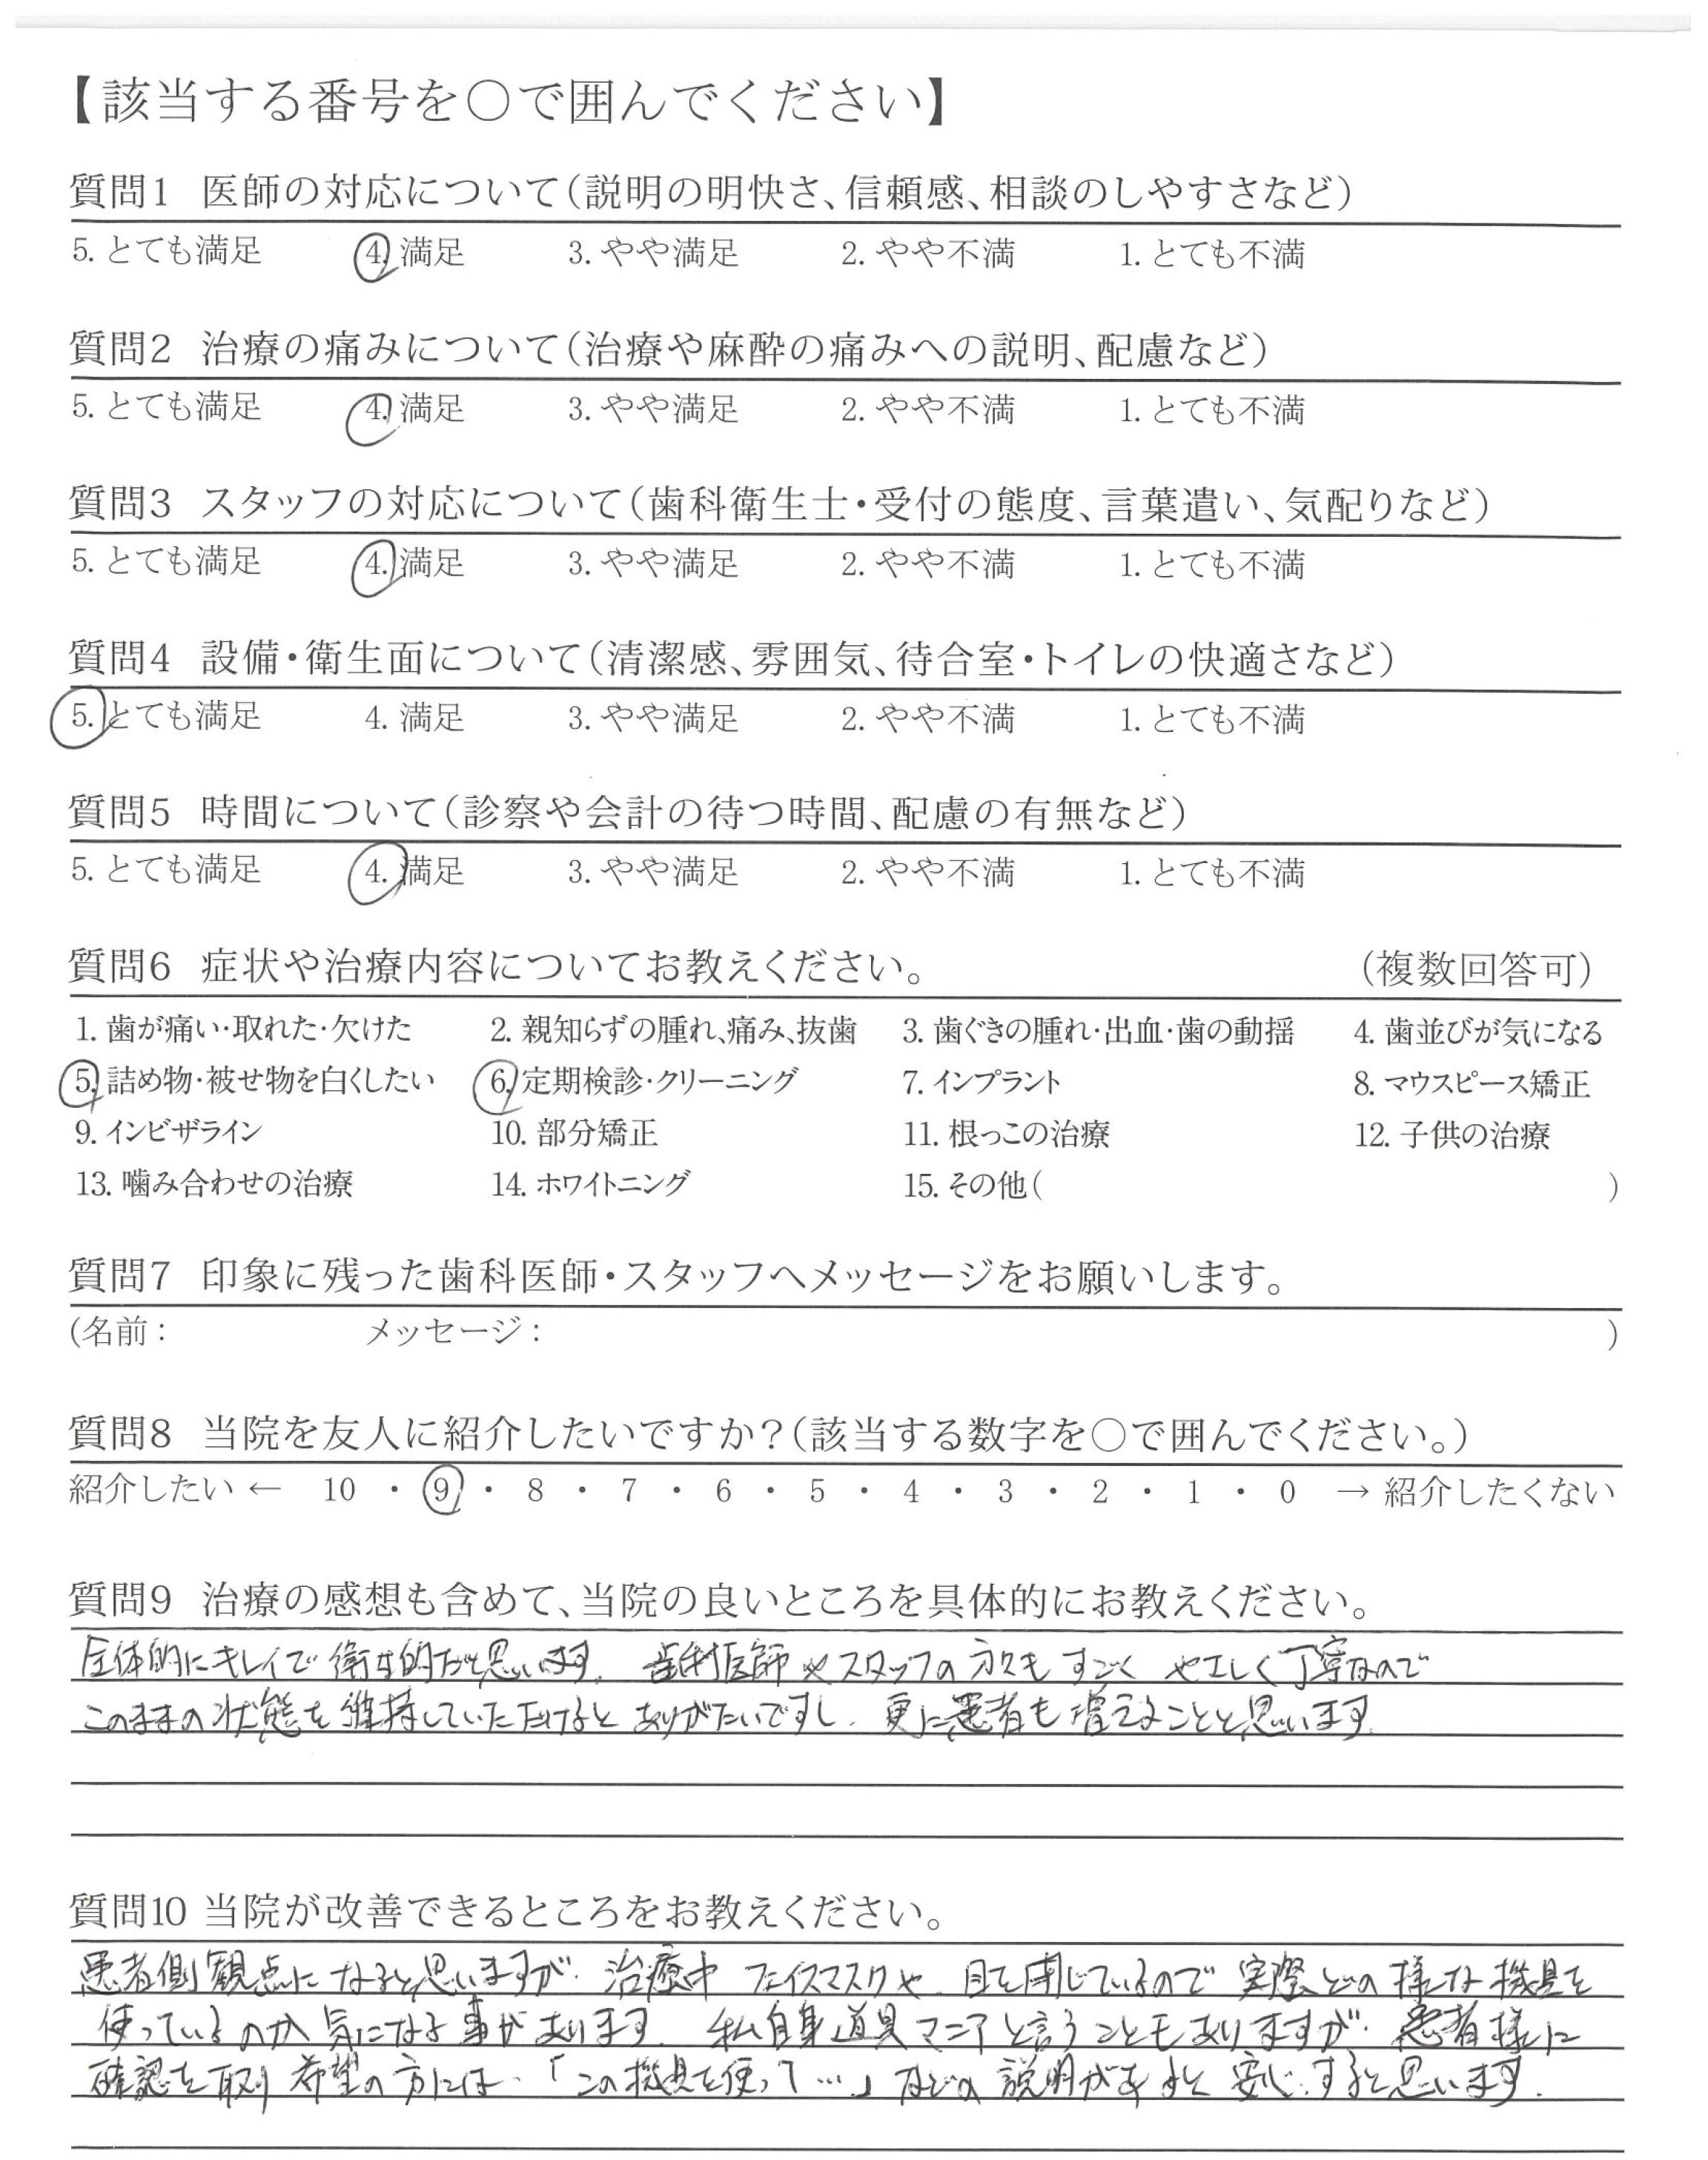 【該当する番号を○で囲んでください】
質問1 医師の対応について(説明の明快さ、信頼感、相談のしやすさなど)
5. とても満足 4. 満足 3. やや満足 2. やや不満 1. とても不満
質問2 治療の痛みについて(治療や麻酔の痛みへの説明、配慮など)
5. とても満足 4. 満足 3. やや満足 2. やや不満 1. とても不満
質問3 スタッフの対応について(歯科衛生士・受付の態度、言葉遣い、気配りなど)
5. とても満足 4. 満足 3. やや満足 2. やや不満 1. とても不満
質問4 設備・衛生面について(清潔感、雰囲気、待合室・トイレの快適さなど)
5. とても満足 4. 満足 3. やや満足 2. やや不満 1. とても不満
質問5 時間について(診察や会計の待つ時間、配慮の有無など)
5. とても満足 4. 満足 3. やや満足 2. やや不満 1. とても不満
質問6 症状や治療内容についてお教えください。 (複数回答可)
1. 歯が痛い・取れた・欠けた 2. 親知らずの腫れ、痛み、抜歯 3. 歯ぐきの腫れ・出血・歯の動揺 4. 歯並びが気になる
5. 詰め物・被せ物を白くしたい 6. 定期検診・クリーニング 7. インプラント 8. マウスピース矯正
9. インビザライン 10. 部分矯正 11. 根っこの治療 12. 子供の治療
13. 噛み合わせの治療 14. ホワイトニング 15. その他( )
質問7 印象に残った歯科医師・スタッフへメッセージをお願いします。
(名前: メッセージ: )
質問8 当院を友人に紹介したいですか?(該当する数字を○で囲んでください。)
紹介したい ← 10 ・ 9 ・ 8 ・ 7 ・ 6 ・ 5 ・ 4 ・ 3 ・ 2 ・ 1 ・ 0 → 紹介したくない
質問9 治療の感想も含めて、当院の良いところを具体的にお教えください。
全体的にキレイで衛生的だと思います。歯科医師やスタッフの方々もすごくやさしく丁寧なので
このままの状態を維持していただけるとありがたいですし、更に患者も増えることと思います。
質問10 当院が改善できるところをお教えください。
患者側観点になると思いますが、治療中フェイスマスクや、目を閉じているので実際どの様な機具を
使っているのか気になる事があります。私自身道具マニアと言うこともありますが、患者様に
確認を取り希望の方には、「この機具を使って…」などの説明があると安心すると思います。